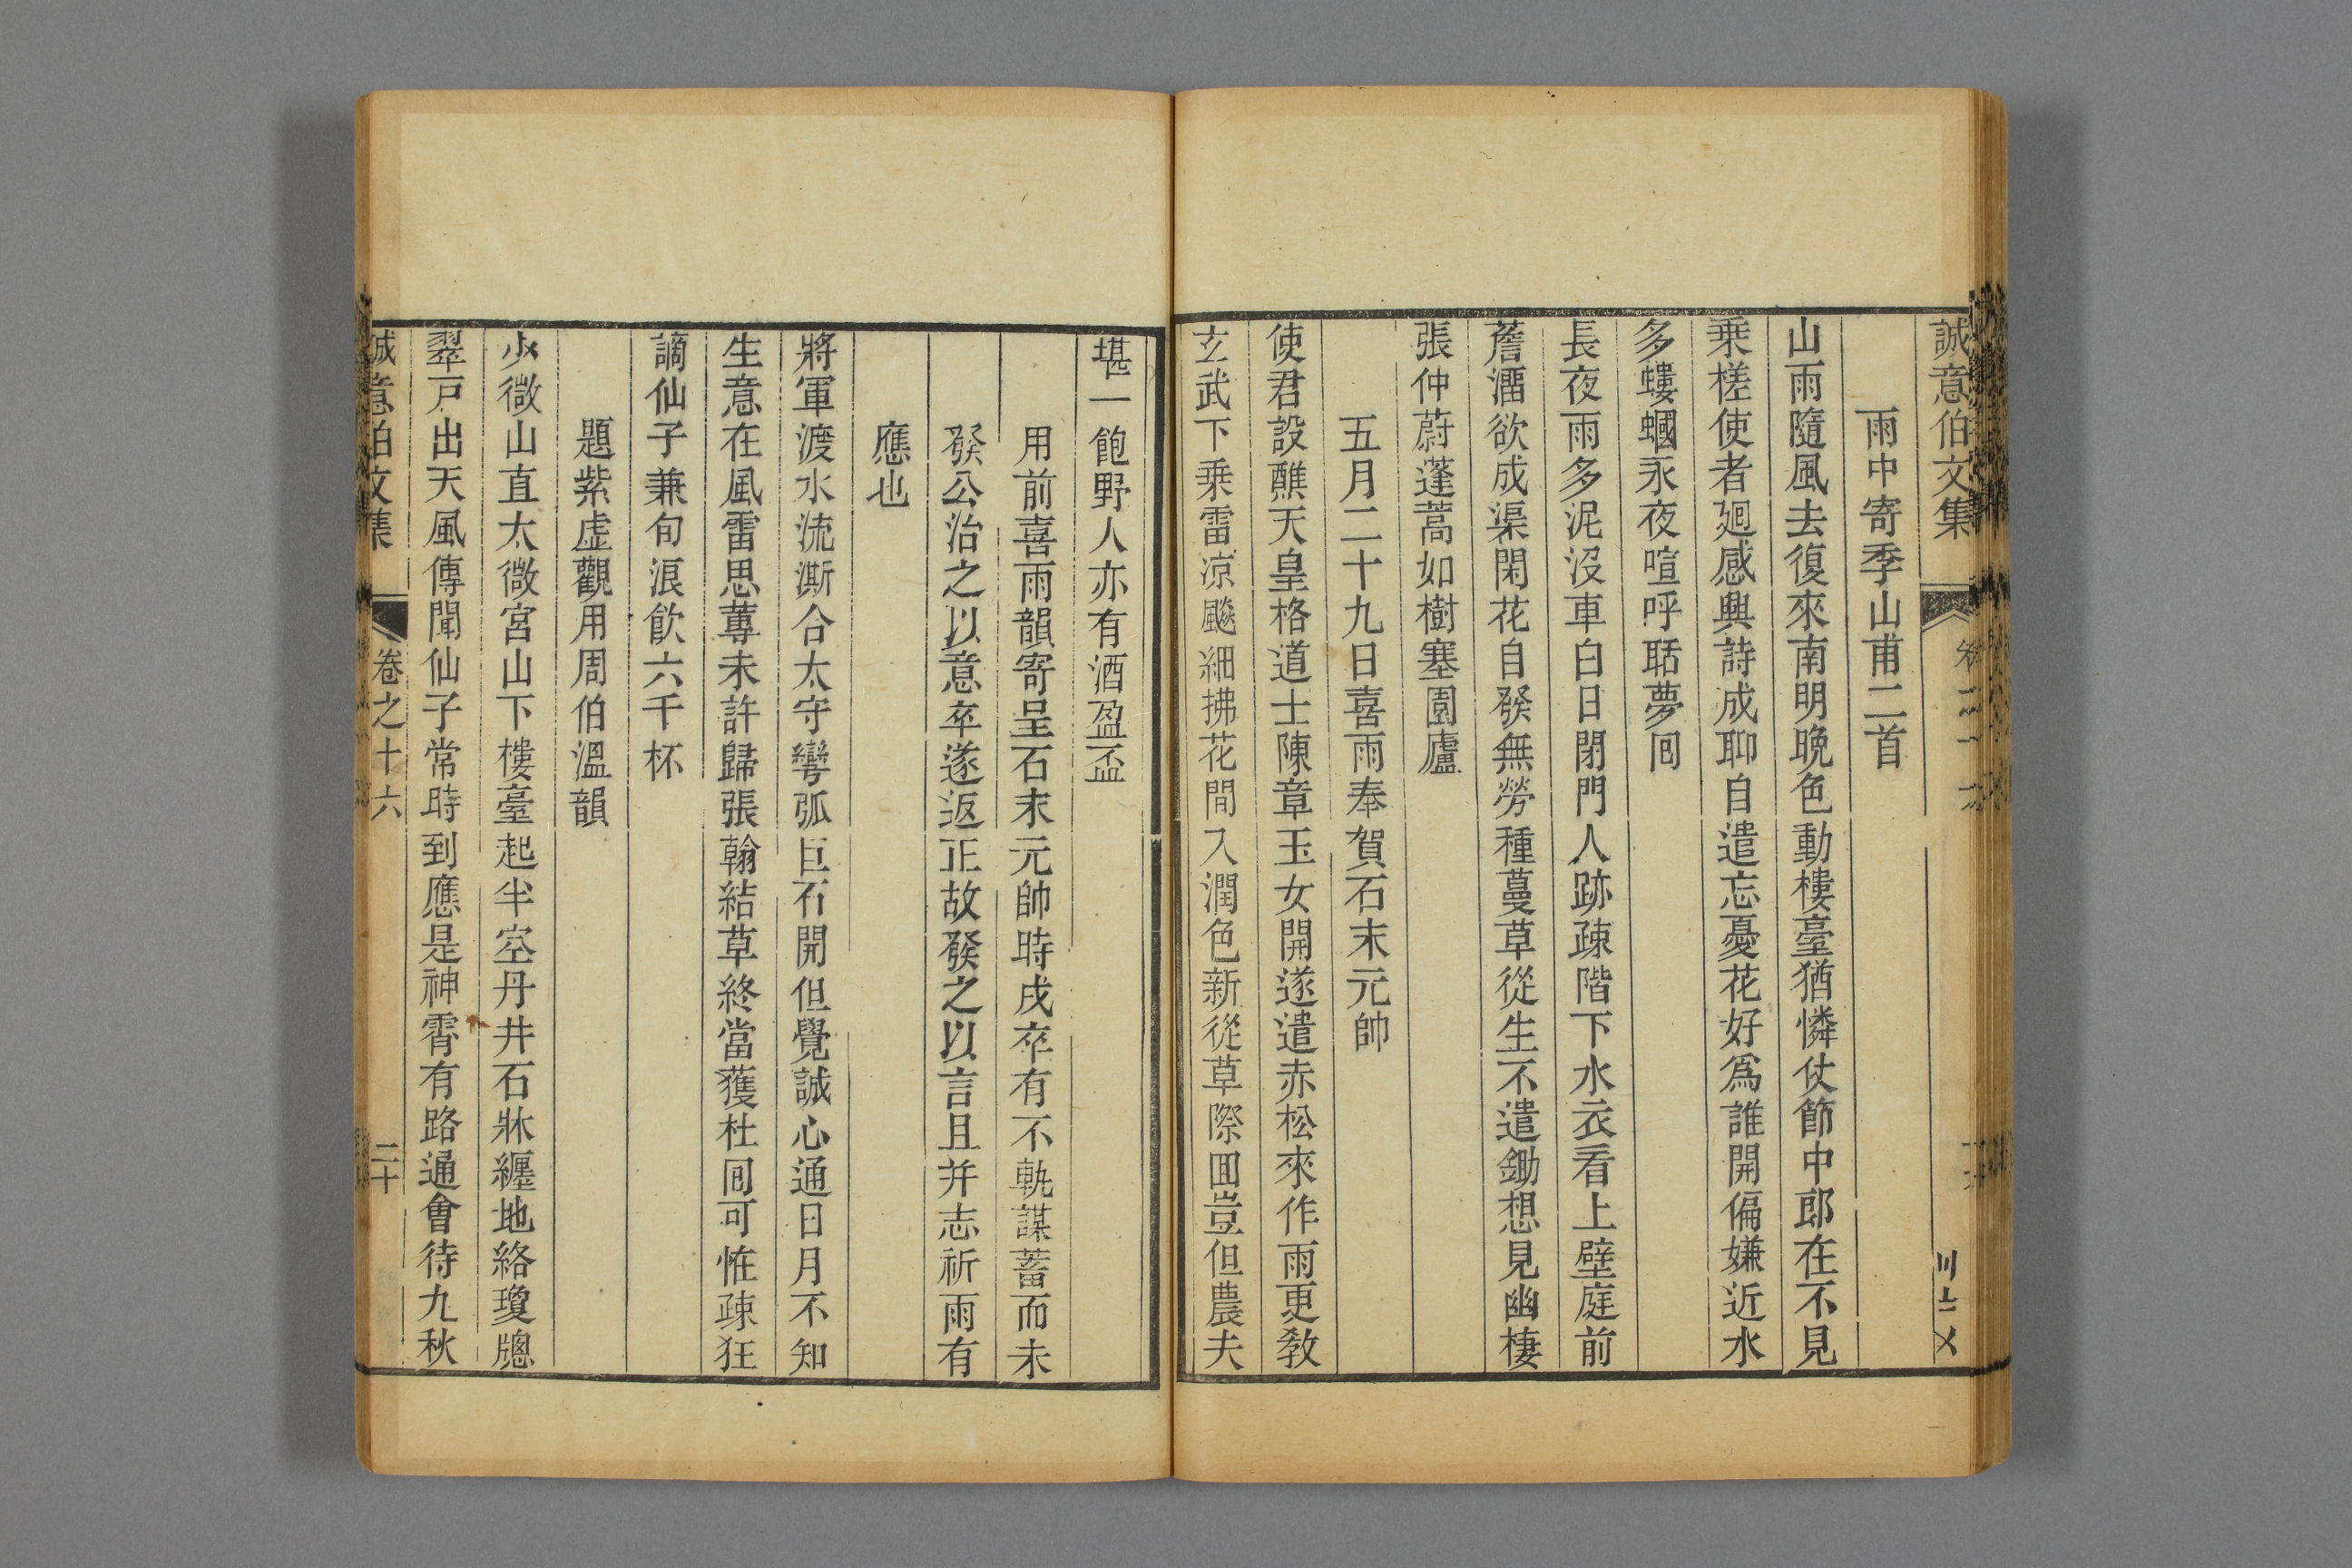 誠意伯文集
雨中寄季山甫二首
山雨隨風去復來南明晚色動樓臺猶憐仗節中郎在不見
乗槎使者廻感興詩成聊自遣忘憂花好為誰開偏嫌近水
多螻蟈永夜喧呼聒夢回
長夜雨多泥沒車白日閉門人跡疎階下水衣看上壁庭前
簷溜欲成渠閑花自發無勞種蔓草從生不遣鋤想見幽棲
張仲蔚蓬蒿如樹塞園廬
五月二十九日喜雨奉賀石末元帥
使君設醮天皇格道士陳章玉女開遂遣赤松來作雨更敎
玄武下乗雷凉飈細拂花間入潤色新從草際回豈但農夫
堪一飽野人亦有酒盈盃
用前喜雨韻寄呈石末元帥時戌卒有不軌謀蓄而未
發公治之以意卒遂返正故發之以言且并志祈雨有
應也
將軍渡水流澌合太守彎弧巨石開但覺誠心通日月不知
生意在風雷思蓴未許歸張翰結草終當獲杜回可怪疎狂
謫仙子兼旬浪飮六千杯
題紫虛觀用周伯溫韻
少微山直太微宮山下樓臺起半空丹井石牀纏地絡瓊牕
翠戸出天風傳聞仙子常時到應是神霄有路通會待九秋
誠意伯文集
卷之十六
二十